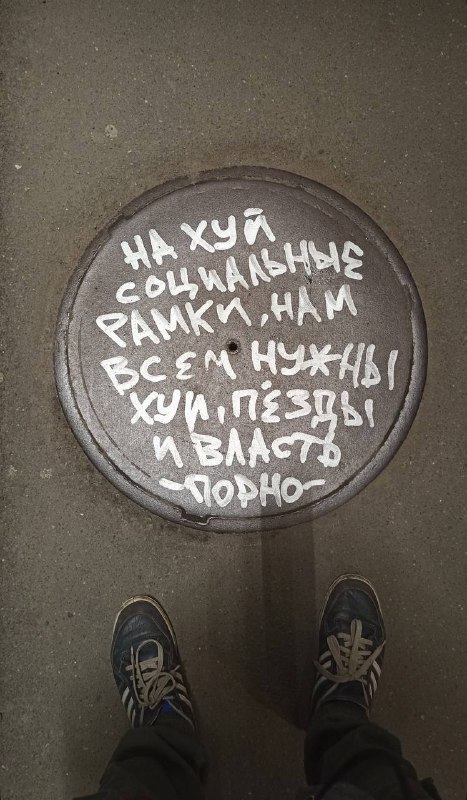 НА ХУЙ
СОЦИАЛЬНЫЕ
РАМКИ, НАМ
ВСЕМ НУЖНЫ
ХУИ, ПЁЗДЫ
И ВЛАСТЬ
-ПОРНО-